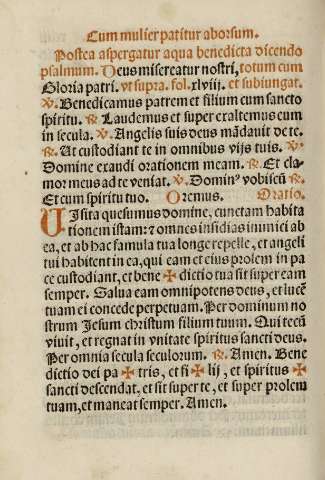 Cum mulier patitur aborsum.
Postea aspergatur aqua benedicta dicendo
psalmum. Deus misereatur nostri, totum cum
Gloria patri. vt supra. fol. xlviij. et subiungat.
℣. Benedicamus patrem et filium cum sancto
spiritu. ℟. Laudemus et super exaltemus eum
in secula. ℣. Angelis suis deus mādauit de te.
℟. Ut custodiant te in omnibus vijs tuis. ℣.
Domine exaudi orationem meam. ℟. Et cla
mor meus ad te veniat. ℣. Dominꝰ vobiscū ℟.
Et cum spiritu tuo. Oremus. Oratio.
UIsita quesumus domine, cunctam habita
tionem istam: ⁊ omnes insidias inimici ab
ea, et ab hac famula tua longe repelle, et angeli
tui habitent in ea, qui eam et eius prolem in pa
ce custodiant, et bene ✠ dictio tua sit super eam
semper. Salua eam omnipotens deus, et lucē
tuam ei concede perpetuam. Per dominum no
strum Jesum christum filium tuum. Qui tecū
viuit, et regnat in vnitate spiritus sancti deus.
Per omnia secula seculorum. ℟. Amen. Bene
dictio dei pa ✠ tris, et fi ✠ lij, et spiritus ✠
sancti descendat, et sit super te, et super prolem
tuam, et maneat semper. Amen.